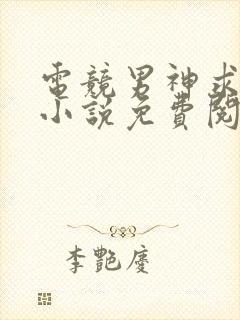 電競男神求
小說免費閱
李艷慶